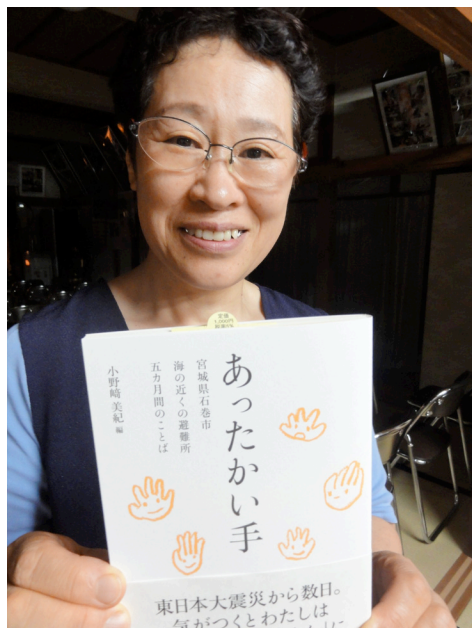 あったかい手
宮城県石巻市
海の近くの避難所
五カ月間のことば
小野﨑 美紀 編
東日本大震災から数日。
気がつくとわたしは